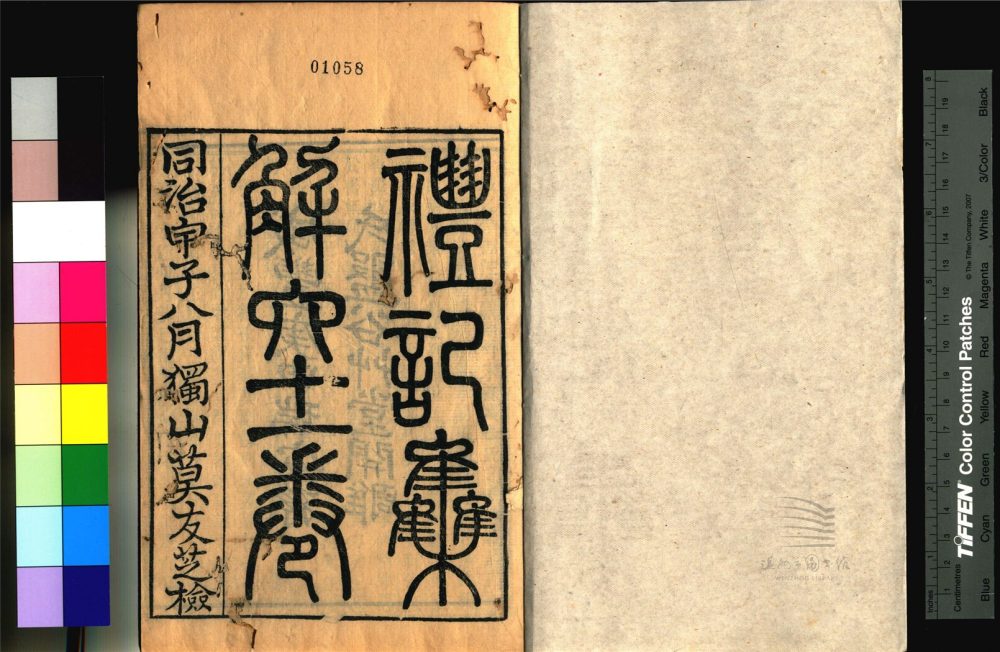 01058
禮記集
解六十一卷
同治甲子八月獨山莫友芝檢
WENZHOU LIBRARY
TIFFEN® Color Control Patches
© The Tiffen Company, 2007
Inches
1 2 3 4 5 6 7 8
Centimetres
1 2 3 4 5 6 7 8 9 10 11 12 13 14 15 16 17 18 19
Blue Cyan Green Yellow Red Magenta White 3/Color Black